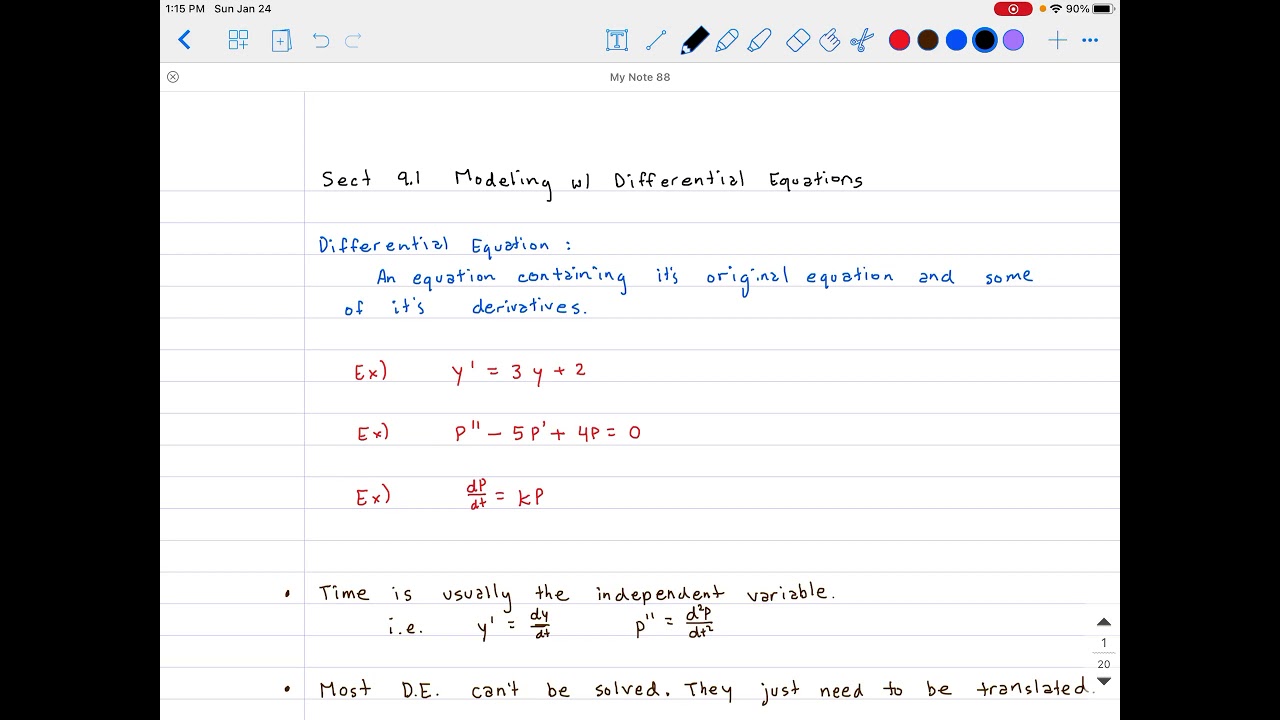 1:15 PM Sun Jan 24
90%
T
My Note 88
Sect 9.1 Modeling w/ Differential Equations
Differential Equation :
An equation containing it's original equation and some
of it's derivatives.
Ex) y' = 3y + 2
Ex) P'' - 5P' + 4P = 0
Ex) dP/dt = kP
• Time is usually the independent variable.
i.e. y' = dy/dt P'' = d²P/dt²
1
20
• Most D.E. can't be solved. They just need to be translated.